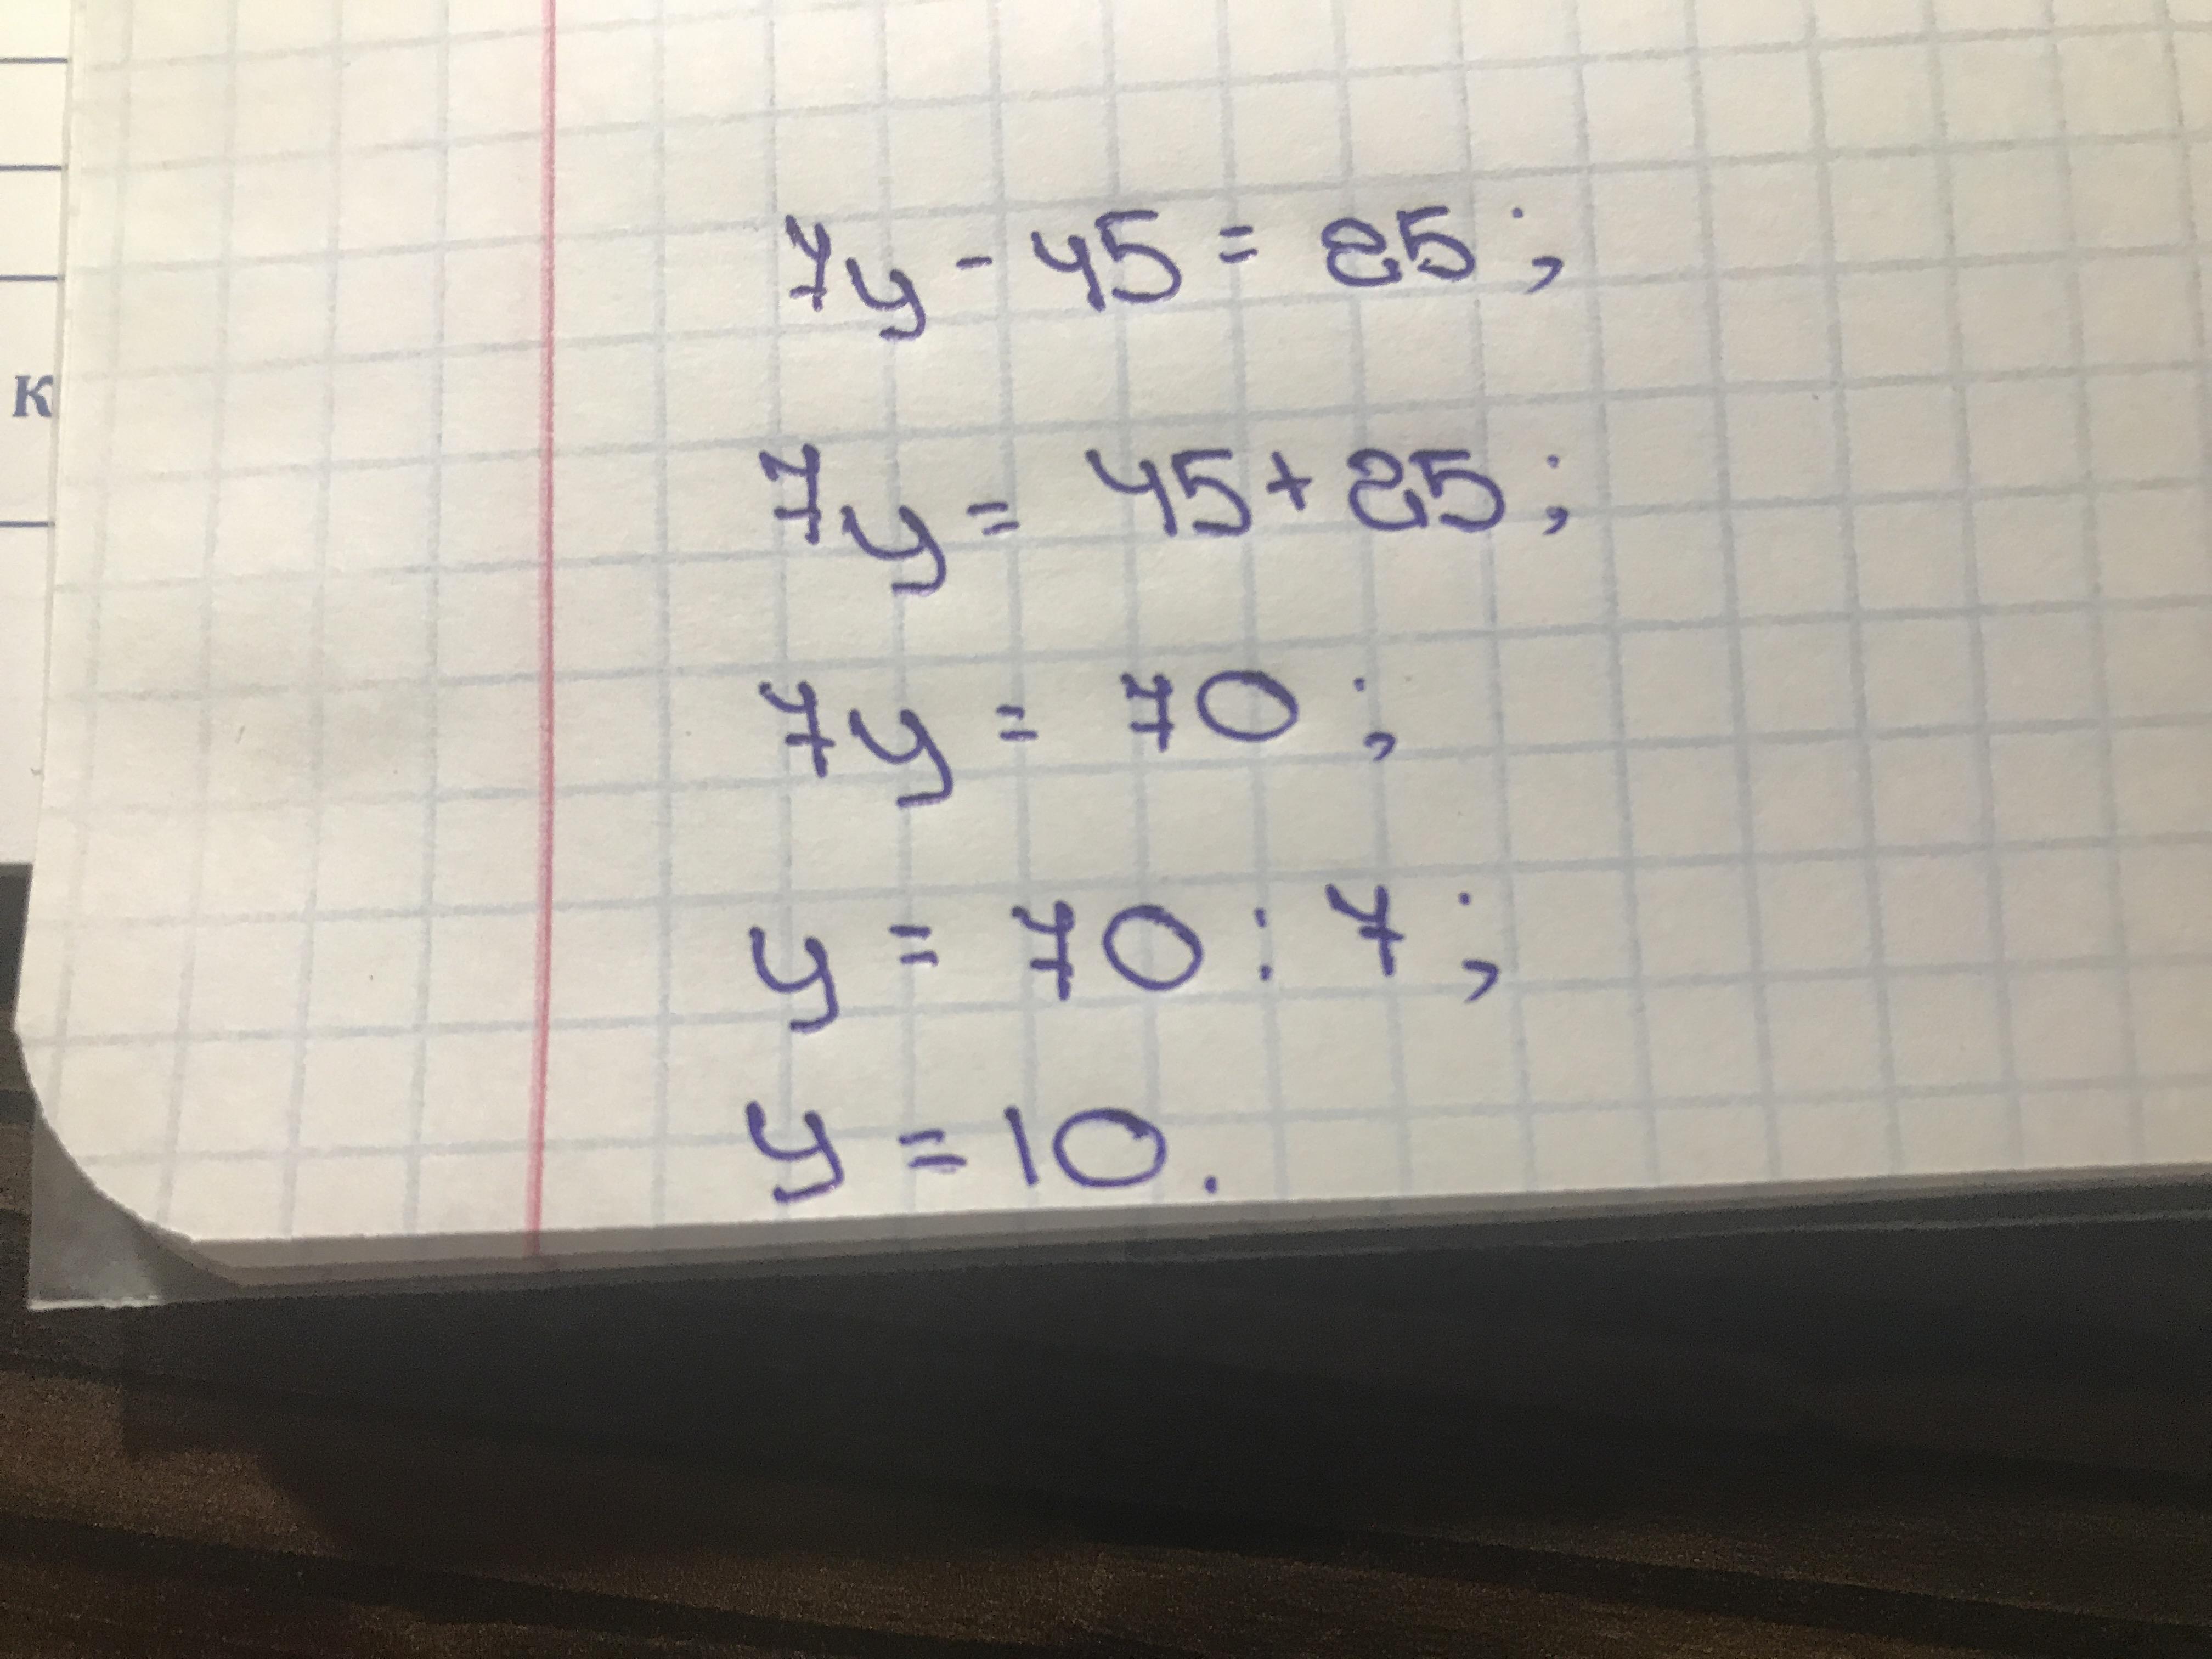 к
7y - 45 = 25;
7y = 45 + 25;
7y = 70;
y = 70 : 7;
y = 10.